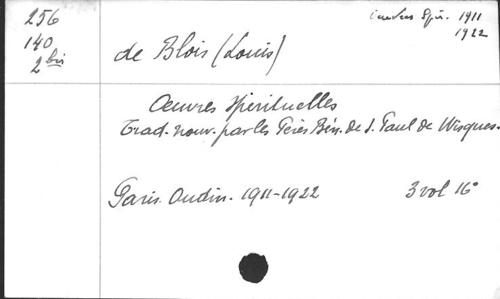 256
140
2 bis
Oeuvres Spir. 1911
1922
de Blois (Louis)
Oeuvres Spirituelles
Trad. nouv. par les Pères Bén. de S. Paul de Wisques.
Paris. Oudin. 1911-1922 3 vol 16°